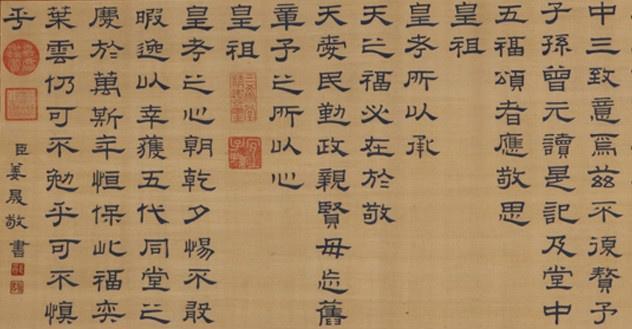 中三致意焉茲不復贅予
子孫曾元讀是記及堂中
五福頌者應敬思
皇祖
皇考所以承
天之福必在於敬
天愛民勤政親賢毋忘舊
章予之所以心
皇祖
皇考之心朝乾夕惕不敢
暇逸以幸獲五代同堂之
慶於萬斯年恒保此福奕
葉雲仍可不勉乎可不慎
乎
臣姜晟敬書
三希堂精鑑璽
宜子孫